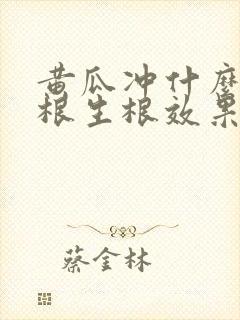 黄瓜冲什么
根生根效果
蔡金林